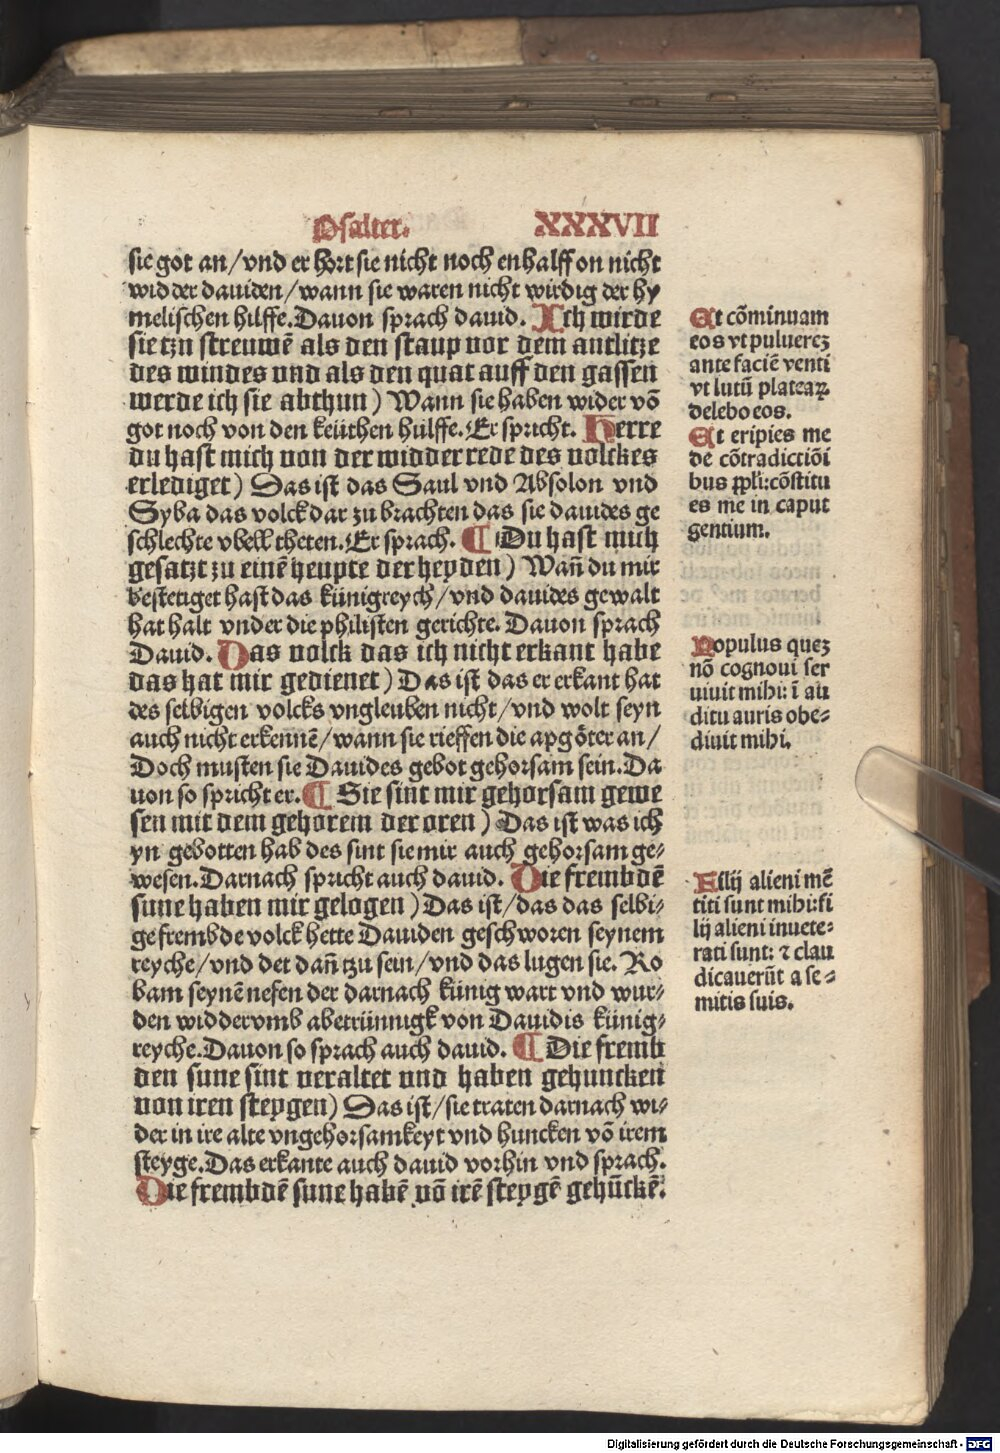 Psalter. XXXVII
sie got an/vnd er hort sie nicht noch enhalff on nicht
widder dauiden/wann sie waren nicht wirdig der hy
melischen hilffe. Dauon sprach dauid. Ich wirde
sie tzu streuwē als den staup vor dem antlitze
des windes vnd als den quat auff den gassen
werde ich sie abthun) Wann sie haben wider vō
got noch von den keüthen hülffe. Er spricht. Herre
du hast mich von der widder rede des volckes
erlediget) Das ist das Saul vnd Absolon vnd
Syba das volck dar zu brachten das sie dauides ge
schlechte vbell theten. Er sprach. ¶ Du hast mich
gesatzt zu einē heupte der heyden) Wañ du mir
bestetiget hast das künigreych/vnd dauides gewalt
hat halt vnder die philisten gerichte. Dauon sprach
Dauid. Das volck das ich nicht erkant habe
das hat mir gedienet) Das ist das er erkant hat
des selbigen volcks vngleuben nicht/vnd wolt seyn
auch nicht erkennē/wann sie rieffen die apgöter an/
Doch musten sie Dauides gebot gehorsam sein. Da
uon so spricht er. ¶ Sie sint mir gehorsam gewe
sen mit dem gehorem der oren) Das ist was ich
yn gebotten hab des sint sie mir auch gehorsam ge⸗
wesen. Darnach spricht auch dauid. Die frembdē
sune haben mir gelogen) Das ist/das das selbi⸗
ge frembde volck hette Dauiden geschworen seynem
reyche/vnd det dañ tzu sein/vnd das lugen sie. Ro
bam seynē nefen der darnach künig wart vnd wur⸗
den widdervmb abetrünnigk von Dauidis künig⸗
reyche. Dauon so sprach auch dauid. ¶ Die fremb
den sune sint veraltet vnd haben gehuncken
von iren steygen) Das ist/sie traten darnach wi⸗
der in ire alte vngehorsamkeyt vnd huncken vō irem
steyge. Das erkante auch dauid vorhin vnd sprach.
Die frembdē sune habē vō irē steygē gehūckē.
Et cōminuam
eos vt puluerez
ante faciē venti
vt lutū plateaꝝ
delebo eos.
Et eripies me
de cōtradictiōi
bus ppli: cōstitu
es me in caput
gentium.
Populus quez
nō cognoui ser
uiuit mihi: ī au
ditu auris obe⸗
diuit mihi.
Filij alieni mē
titi sunt mihi: fi
lij alieni inuete⸗
rati sunt: ⁊ clau
dicauerūt a se⸗
mitis suis.
Digitalisierung gefördert durch die Deutsche Forschungsgemeinschaft - DFG